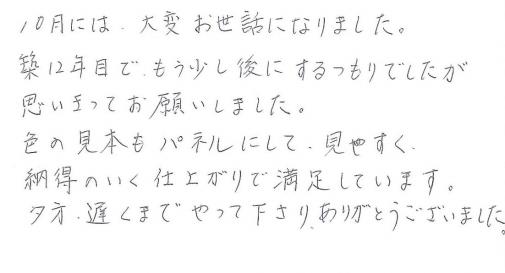 10月には、大変お世話になりました。
築12年目で、もう少し後にするつもりでしたが
思い立ってお願いしました。
色の見本もパネルにして、見やすく、
納得のいく仕上がりで満足しています。
夕方、遅くまでやって下さり、ありがとうございました。